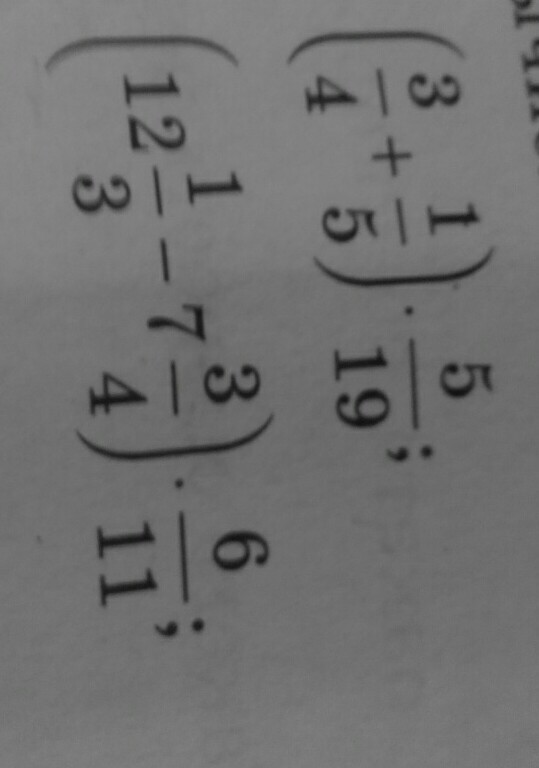 (3/4 + 1/5) · 5/19;
(12 1/3 − 7 3/4) · 6/11;